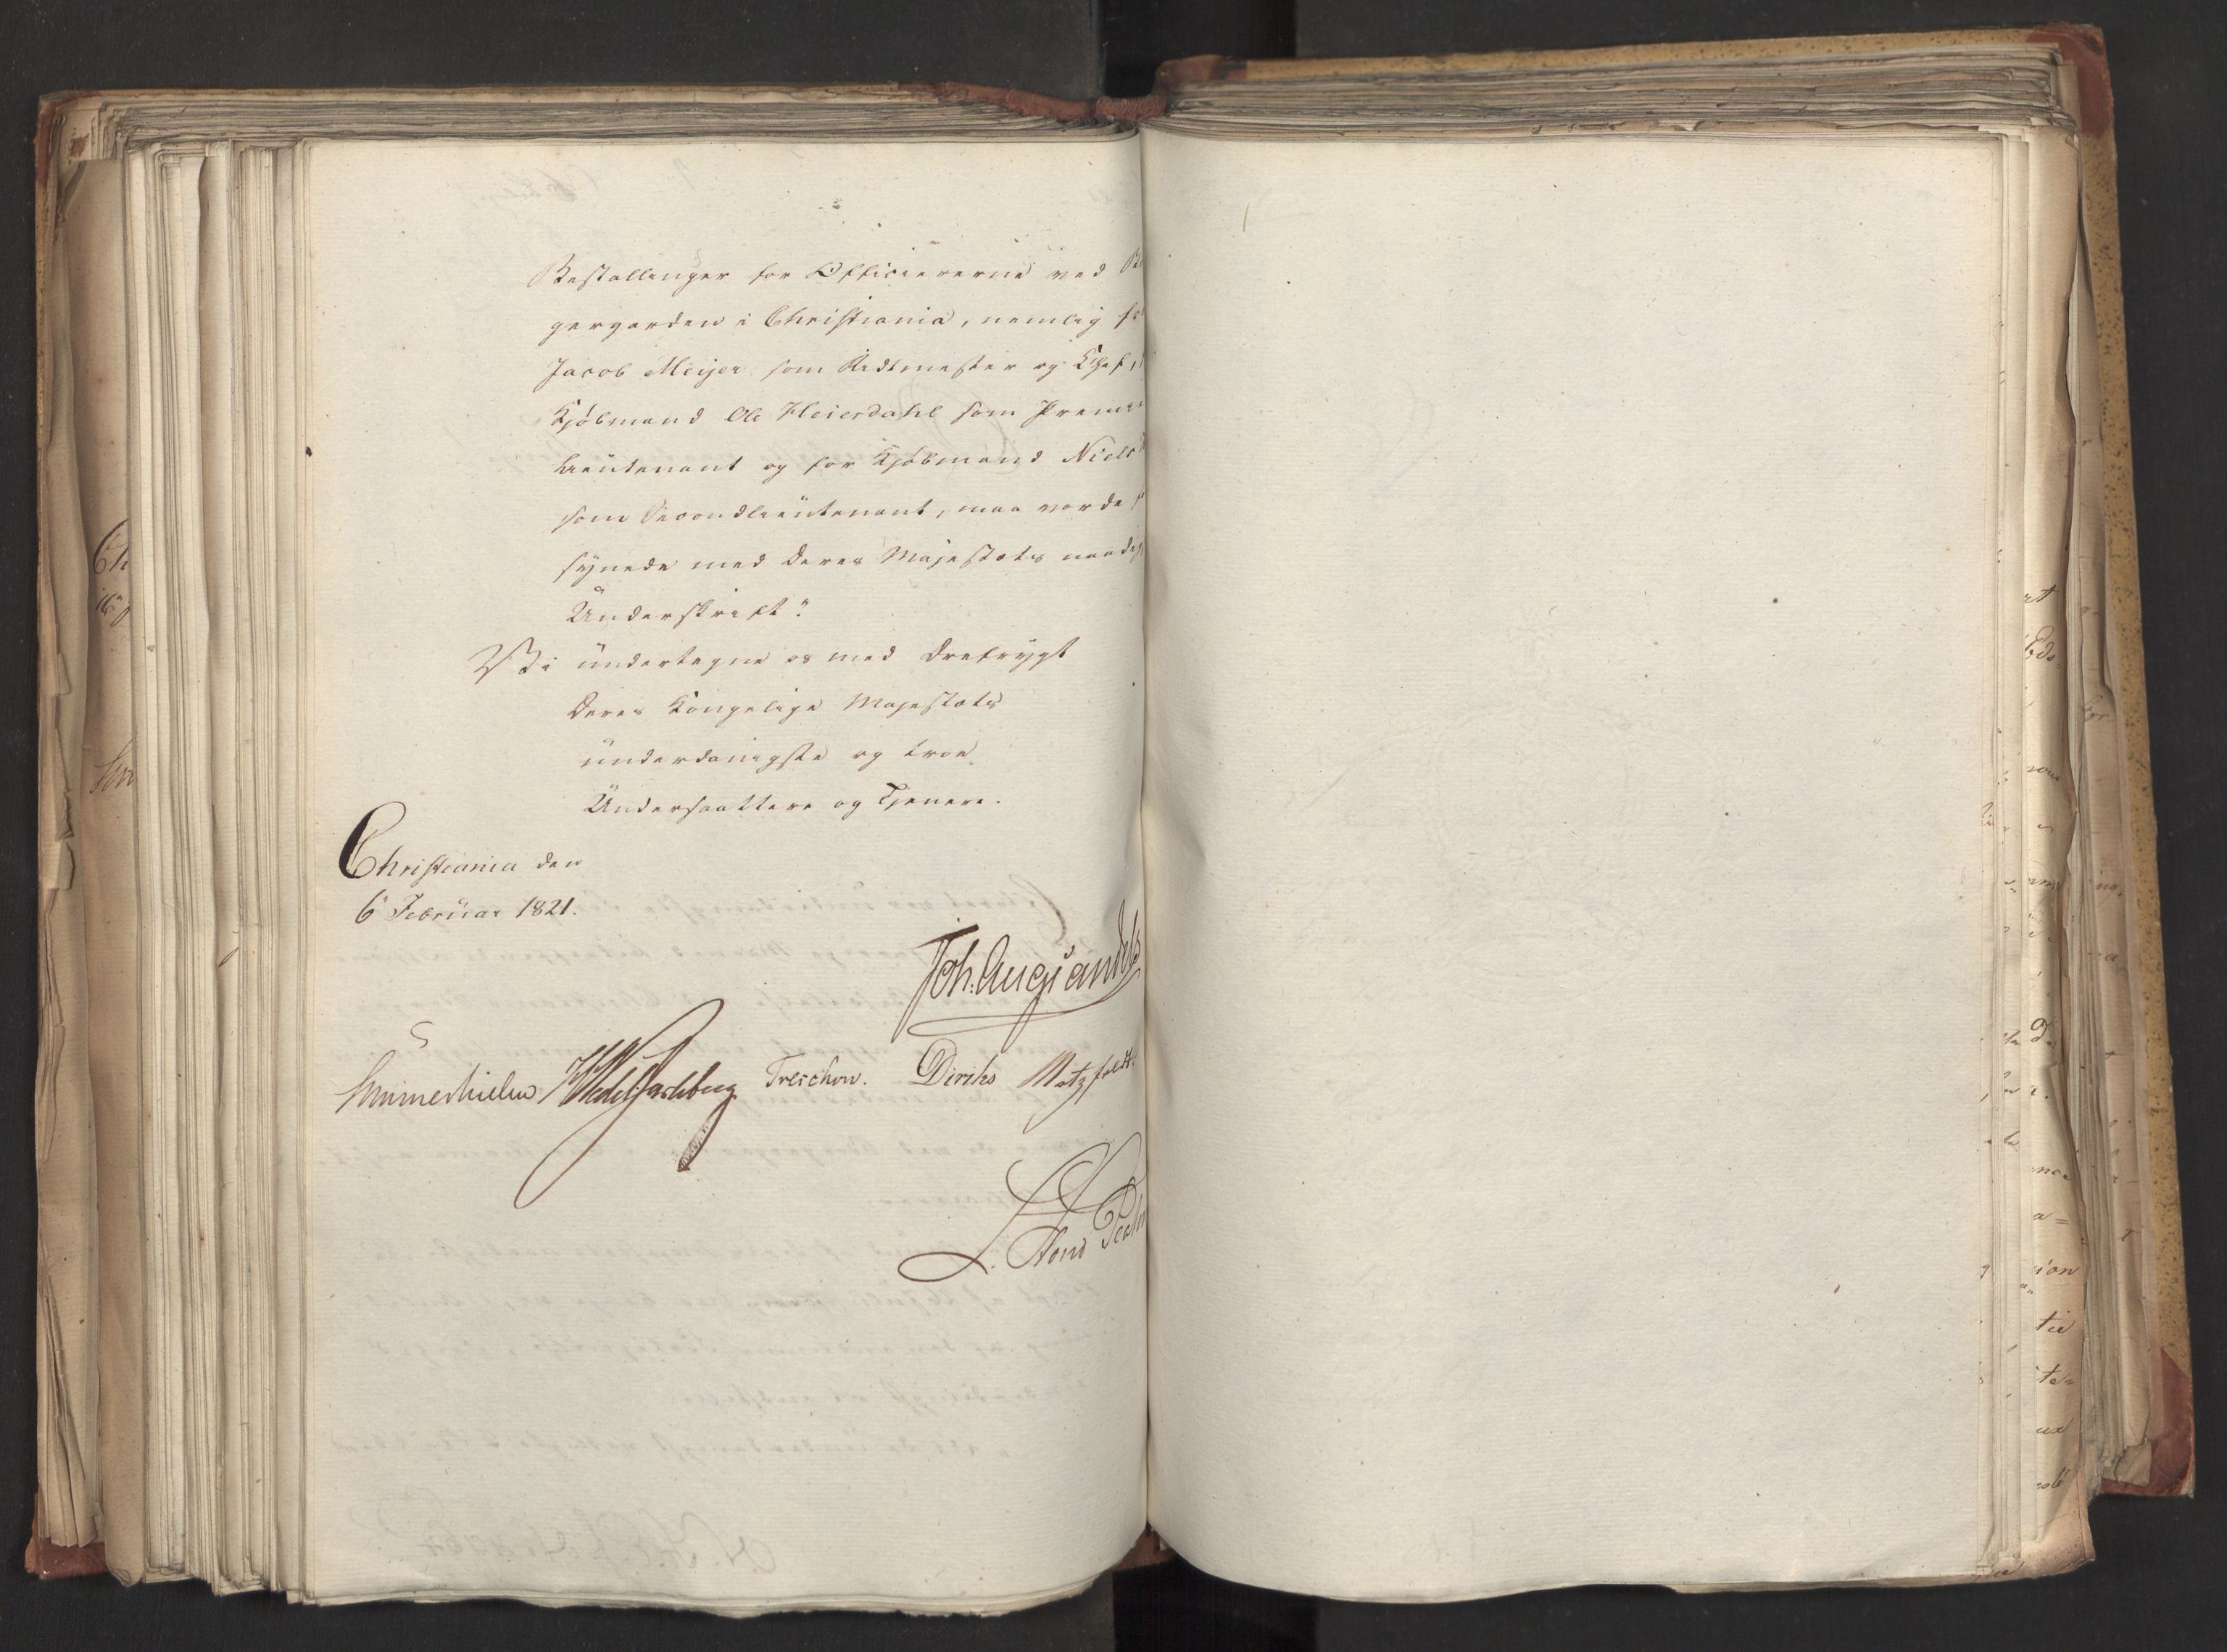 Bestallinger for Officiererne ved
gergarden i Christiania, nemlig
Jacob Meijer som Ridtmester og Chef,
Kjöbmand Ole Heierdahl som Premier
Lieutenant og for Kjöbmand Niels
som Secondlieutenant, maa vorde
synede med Deres Majestæts naadig
Underskrift."
Vi undertegne os med Örefrygt
Deres Kongelige Majestæts
underdanigste og troe
Undersaattere og Tjenere.
Christiania den
6 Februar 1821.
Joh. Aug. Sandels
Sommerhielm Wedel Jarlsberg Treschow. Diriks Motzfeldt.
L.